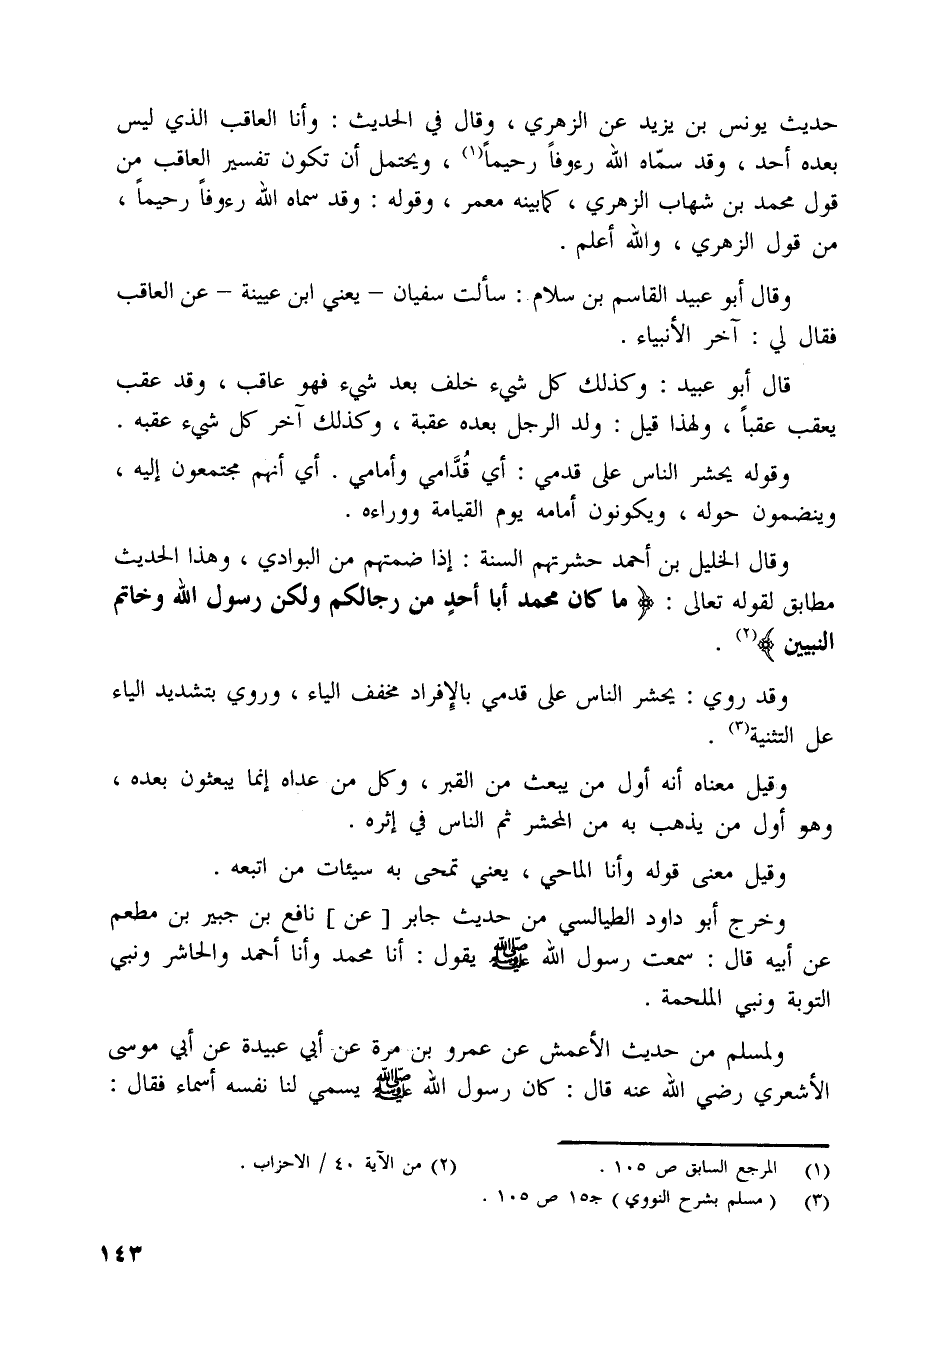 حديث يونس بن يزيد عن الزهري ، وقال في الحديث : وأنا العاقب الذي ليس
بعده أحد ، وقد سمّاه الله رءوفاً رحيماً(١) ، ويحتمل أن تكون تفسير العاقب من
قول محمد بن شهاب الزهري ، كابينه معمر ، وقوله : وقد سماه الله رءوفاً رحيماً ،
من قول الزهري ، والله أعلم .
وقال أبو عبيد القاسم بن سلام : سألت سفيان – يعني ابن عيينة – عن العاقب
فقال لي : آخر الأنبياء .
قال أبو عبيد : وكذلك كل شيء خلف بعد شيء فهو عاقب ، وقد عقب
يعقب عقباً ، ولهذا قيل : ولد الرجل بعده عقبة ، وكذلك آخر كل شيء عقبه .
وقوله يحشر الناس على قدمي : أي قُدَّامي وأمامي . أي أنهم مجتمعون إليه ،
وينضمون حوله ، ويكونون أمامه يوم القيامة ووراءه .
وقال الخليل بن أحمد حشرتهم السنة : إذا ضمتهم من البوادي ، وهذا الحديث
مطابق لقوله تعالى : ﴿ ما كان محمد أبا أحدٍ من رجالكم ولكن رسول الله وخاتم
النبيين ﴾(٢) .
وقد روي : يحشر الناس على قدمي بالإفراد مخفف الياء ، وروي بتشديد الياء
عل التثنية(٣) .
وقيل معناه أنه أول من يبعث من القبر ، وكل من عداه إنما يبعثون بعده ،
وهو أول من يذهب به من المحشر ثم الناس في إثره .
وقيل معنى قوله وأنا الماحي ، يعني تمحى به سيئات من اتبعه .
وخرج أبو داود الطيالسي من حديث جابر [ عن ] نافع بن جبير بن مطعم
عن أبيه قال : سمعت رسول الله ﷺ يقول : أنا محمد وأنا أحمد والحاشر ونبي
التوبة ونبي الملحمة .
ولمسلم من حديث الأعمش عن عمرو بن مرة عن أبي عبيدة عن أبي موسى
الأشعري رضي الله عنه قال : كان رسول الله ﷺ يسمي لنا نفسه أسماء فقال :
(١) المرجع السابق ص ١٠٥ . (٢) من الآية ٤٠ / الاحزاب .
(٣) ( مسلم بشرح النووي ) جـ١٥ ص ١٠٥ .
١٤٣